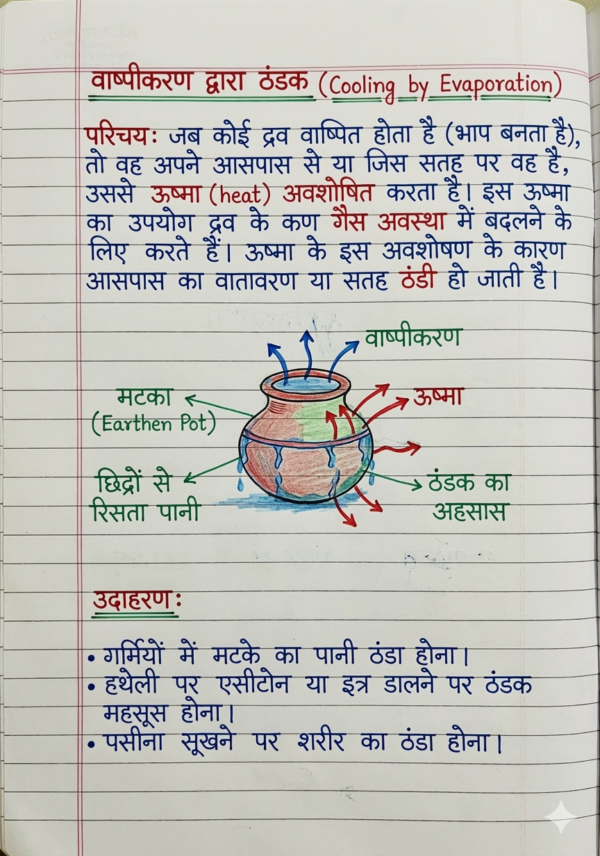 वाष्पीकरण द्वारा ठंडक (Cooling by Evaporation)
परिचय: जब कोई द्रव वाष्पित होता है (भाप बनता है),
तो वह अपने आसपास से या जिस सतह पर वह है,
उससे ऊष्मा (heat) अवशोषित करता है। इस ऊष्मा
का उपयोग द्रव के कण गैस अवस्था में बदलने के
लिए करते हैं। ऊष्मा के इस अवशोषण के कारण
आसपास का वातावरण या सतह ठंडी हो जाती है।
वाष्पीकरण
मटका
(Earthen Pot)
ऊष्मा
छिद्रों से
रिसता पानी
ठंडक का
अहसास
उदाहरण:
• गर्मियों में मटके का पानी ठंडा होना।
• हथेली पर एसीटोन या इत्र डालने पर ठंडक
महसूस होना।
• पसीना सूखने पर शरीर का ठंडा होना।